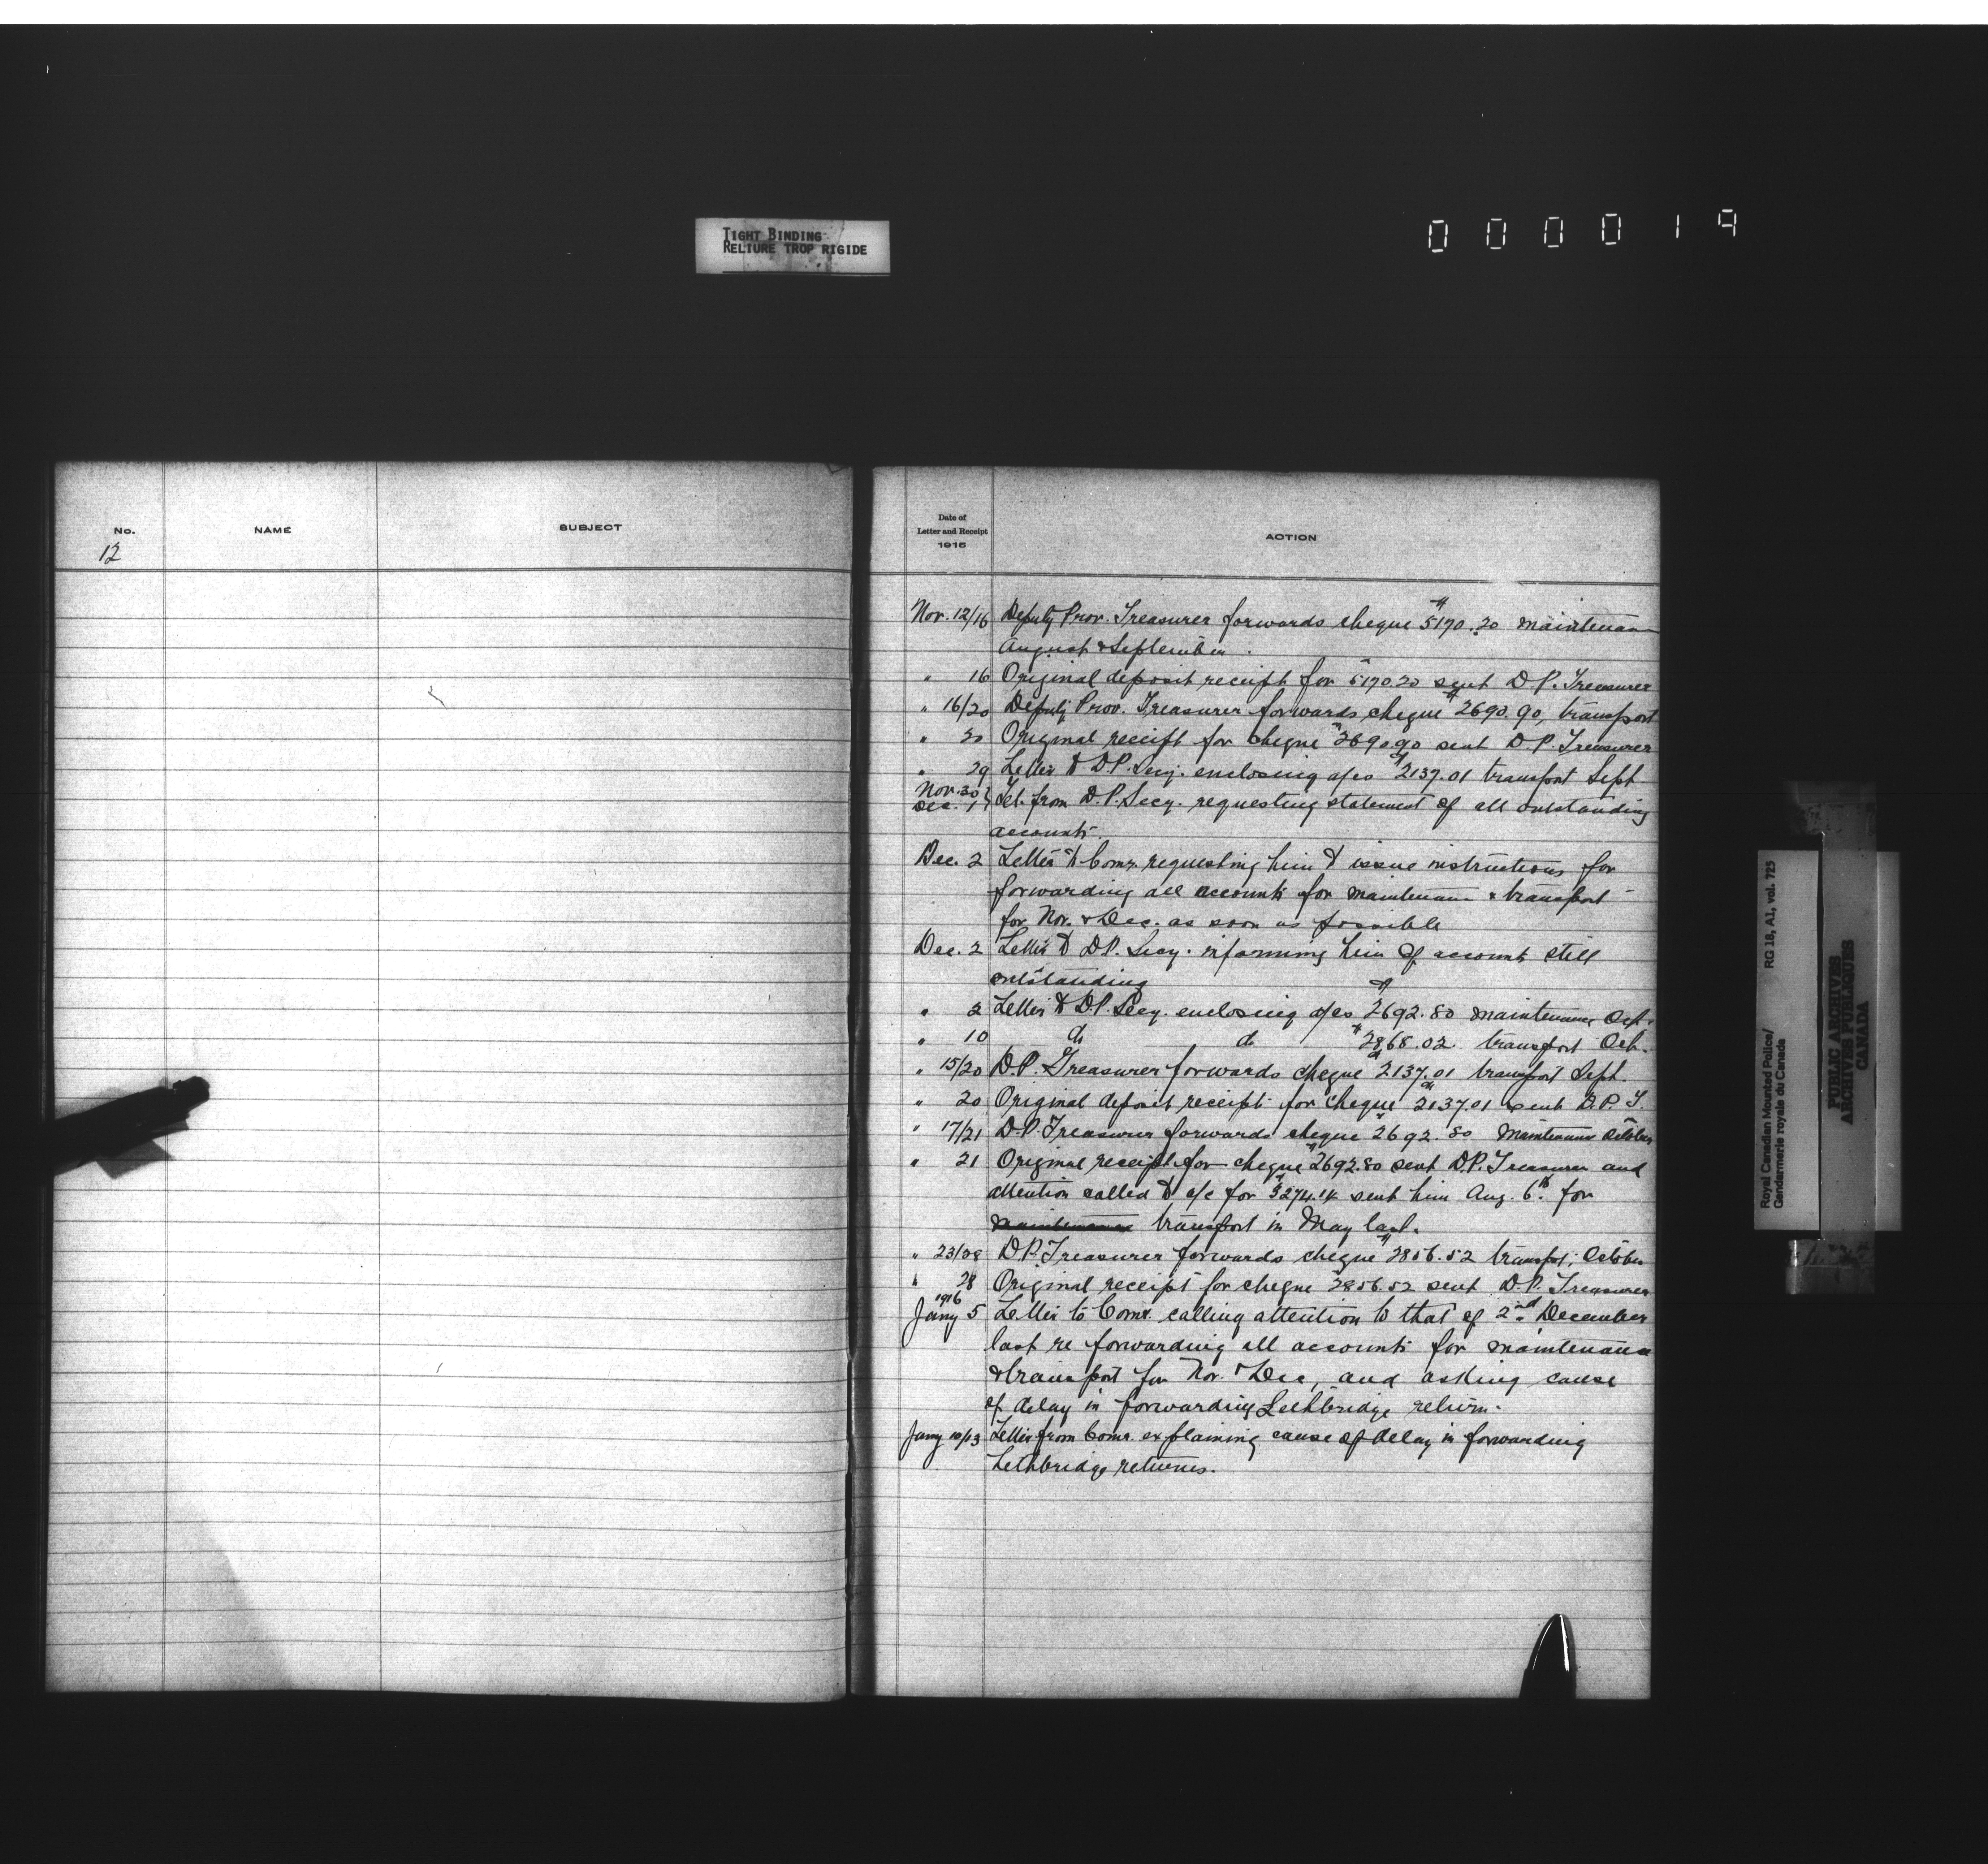 TIGHT BINDING
RELIURE TROP RIGIDE
000019
No. NAME SUBJECT
12
Date of
Letter and Receipt
1915
ACTION
Nov. 12/16 Deputy Prov. Treasurer forwards cheque $5170.20 maintenance
August & September.
" 16 Original deposit receipt for $5170.20 sent D.P. Treasurer
" 16/20 Deputy Prov. Treasurer forwards cheque $2690.90, transport
" 20 Original receipt for cheque $2690.90 sent D.P. Treasurer
" 29 Letter to D.P. Secy. enclosing a/cs $2137.01 transport Sept
Nov. 30
Dec. 1 } Tel. from D.P. Secy. requesting statement of all outstanding
accounts.
Dec. 2 Letter to Comr. requesting him to issue instructions for
forwarding all accounts for maintenance & transport
for Nov. & Dec. as soon as possible
Dec. 2 Letter to D.P. Secy. informing him of accounts still
outstanding
" 2 Letter to D.P. Secy. enclosing a/cs $2692.80 maintenance Oct.
" 10 do do $2868.02 transport Oct.
" 15/20 D.P. Treasurer forwards cheque $2137.01 transport Sept.
" 20 Original deposit receipt for cheque $2137.01 sent D.P.T.
" 17/21 D.P. Treasurer forwards cheque $2692.80 Maintenance October
" 21 Original receipt for cheque $2692.80 sent D.P. Treasurer and
attention called to a/c for $3274.14 sent him Aug. 6th. for
maintenance transport in May last.
" 23/28 D.P. Treasurer forwards cheque $2856.52 transpt; October
" 28 Original receipt for cheque $2856.52 sent D.P. Treasurer
1916
Jany 5 Letter to Comr. calling attention to that of 2nd December
last re forwarding all accounts for maintenance
& transport for Nov. & Dec, and asking cause
of delay in forwarding Lethbridge return.
Jany 10/13 Letter from Comr. explaining cause of delay in forwarding
Lethbridge returns.
Royal Canadian Mounted Police/ RG 18, A1, vol. 723
Gendarmerie royale du Canada
PUBLIC ARCHIVES
ARCHIVES PUBLIQUES
CANADA